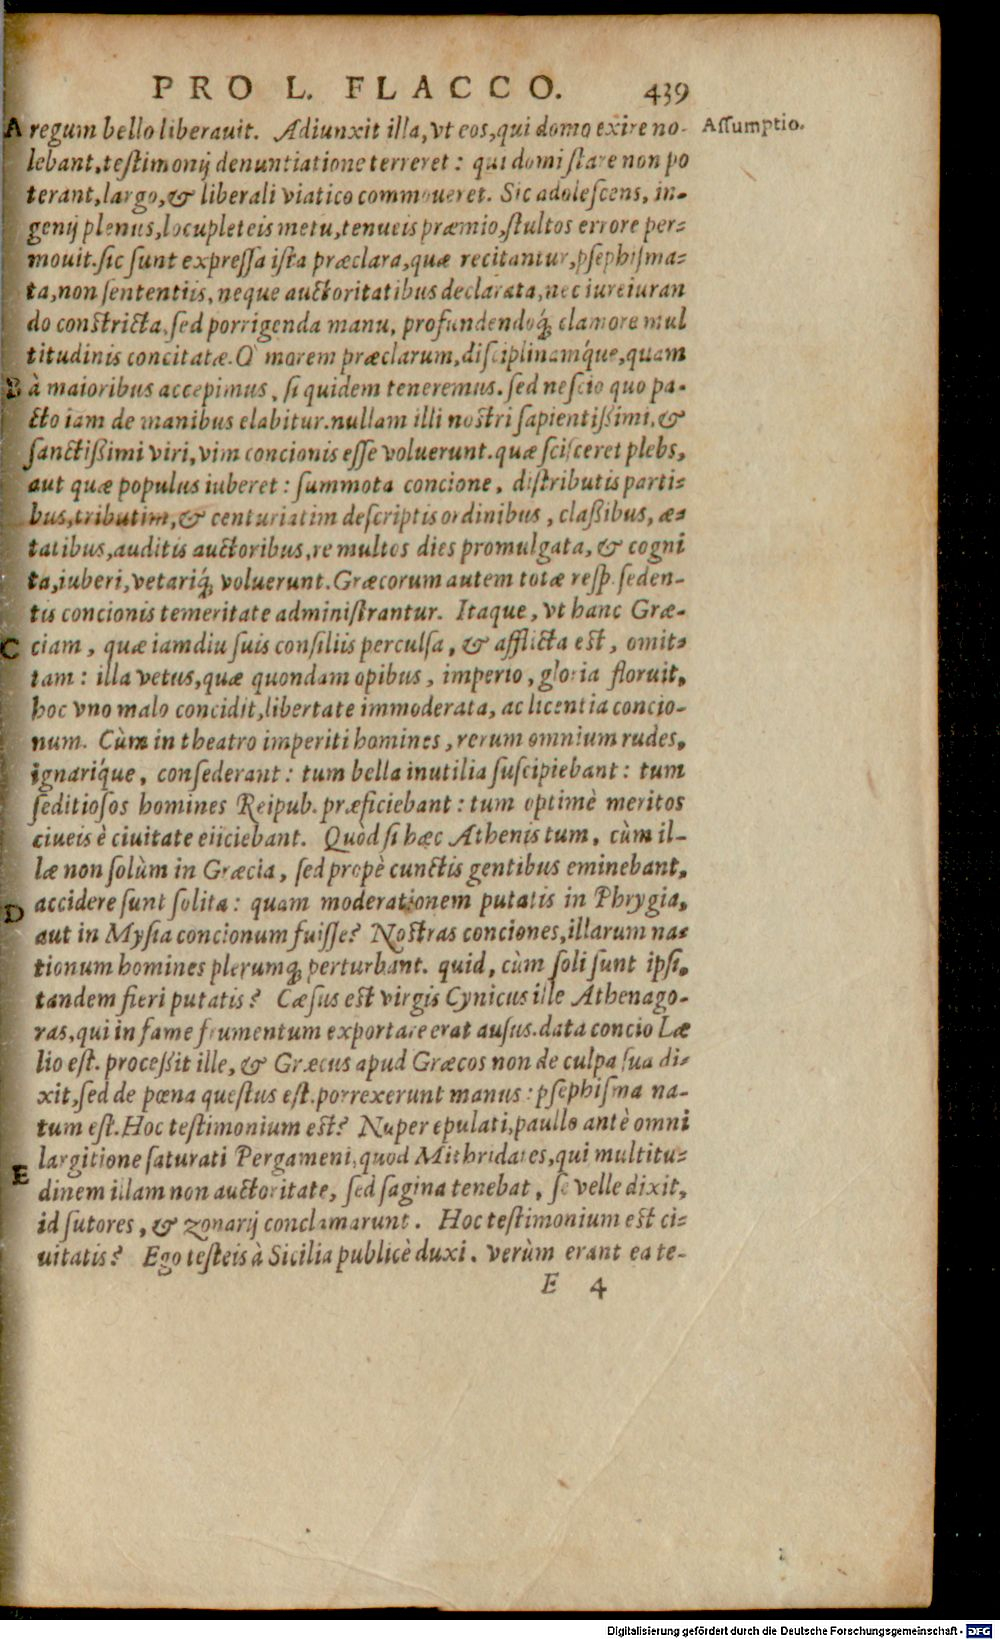 PRO L. FLACCO. 439
A regum bello liberauit. Adiunxit illa, vt eos, qui domo exire no- Assumptio.
lebant, testimonij denuntiatione terreret: qui domi stare non po
terant, largo, & liberali viatico commoueret. Sic adolescens, in-
genij plenus, locupleteis metu, tenueis præmio, stultos errore per-
mouit. sic sunt expressa ista præclara, quæ recitantur, psephisma-
ta, non sententiis, neque auctoritatibus declarata, nec iureiuran
do constricta, sed porrigenda manu, profundendoq́; clamore mul
titudinis concitatæ. O morem præclarum, disciplinamq́ue, quam
B à maioribus accepimus, si quidem teneremus. sed nescio quo pa-
cto iam de manibus elabitur. nullam illi nostri sapientißimi, &
sanctißimi viri, vim concionis esse voluerunt. quæ scisceret plebs,
aut quæ populus iuberet: summota concione, distributis parti-
bus, tributim, & centuriatim descriptis ordinibus, claßibus, æ-
tatibus, auditis auctoribus, re multos dies promulgata, & cogni
ta, iuberi, vetariq́; voluerunt. Græcorum autem totæ resp. seden-
tis concionis temeritate administrantur. Itaque, vt hanc Græ-
C ciam, quæ iamdiu suis consiliis perculsa, & afflicta est, omit-
tam: illa vetus, quæ quondam opibus, imperio, gloria floruit,
hoc vno malo concidit, libertate immoderata, ac licentia concio-
num. Cùm in theatro imperiti homines, rerum omnium rudes,
ignariq́ue, consederant: tum bella inutilia suscipiebant: tum
seditiosos homines Reipub. præficiebant: tum optimè meritos
ciueis è ciuitate eiiciebant. Quòd si hæc Athenis tum, cùm il-
læ non solùm in Græcia, sed propè cunctis gentibus eminebant,
accidere sunt solita: quam moderationem putatis in Phrygia,
D aut in Mysia concionum fuisse? Nostras conciones, illarum na-
tionum homines plerumq; perturbant. quid, cùm soli sunt ipsi,
tandem fieri putatis? Cæsus est virgis Cynicus ille Athenago-
ras, qui in fame frumentum exportare erat ausus. data concio Læ
lio est. proceßit ille, & Græcus apud Græcos non de culpa sua di-
xit, sed de pœna questus est. porrexerunt manus: psephisma na-
tum est. Hoc testimonium est? Nuper epulati, paullo antè omni
largitione saturati Pergameni, quod Mithridates, qui multitu-
E dinem illam non auctoritate, sed sagina tenebat, se velle dixit,
id sutores, & zonarij conclamarunt. Hoc testimonium est ci-
uitatis? Ego testeis à Sicilia publicè duxi. verùm erant ea te-
E 4
Digitalisierung gefördert durch die Deutsche Forschungsgemeinschaft - DFG